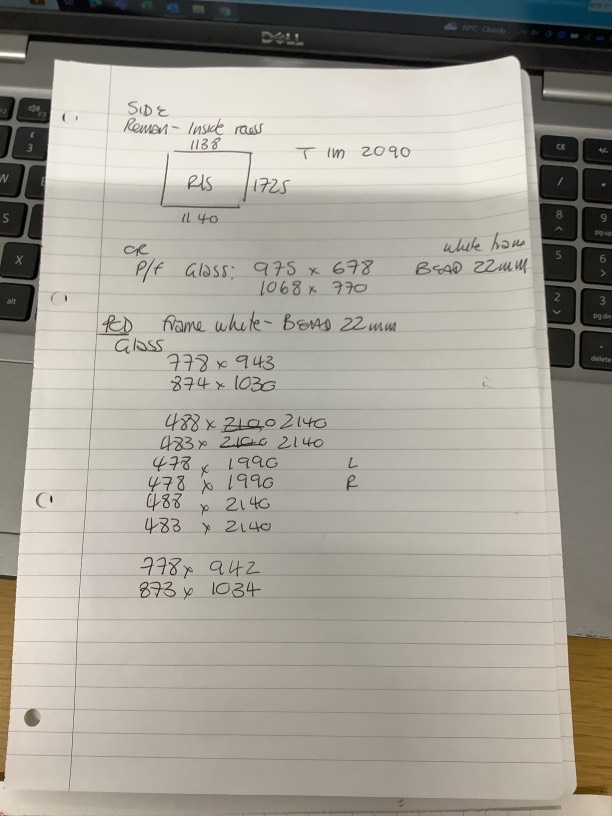 DELL
SIDE
Remon - Inside
1138
T 1m 2090
RIS
1725
1140
OR
white
P/F Glass: 975 x 678 BEAD 22mm
1068 x 770
frame white - BEAD 22mm
Glass
778 x 943
874 x 1030
488 x 2100 2140
483 x 2100 2140
478 x 1990 L
478 x 1990 R
488 x 2140
483 x 2140
778 x 942
873 x 1034